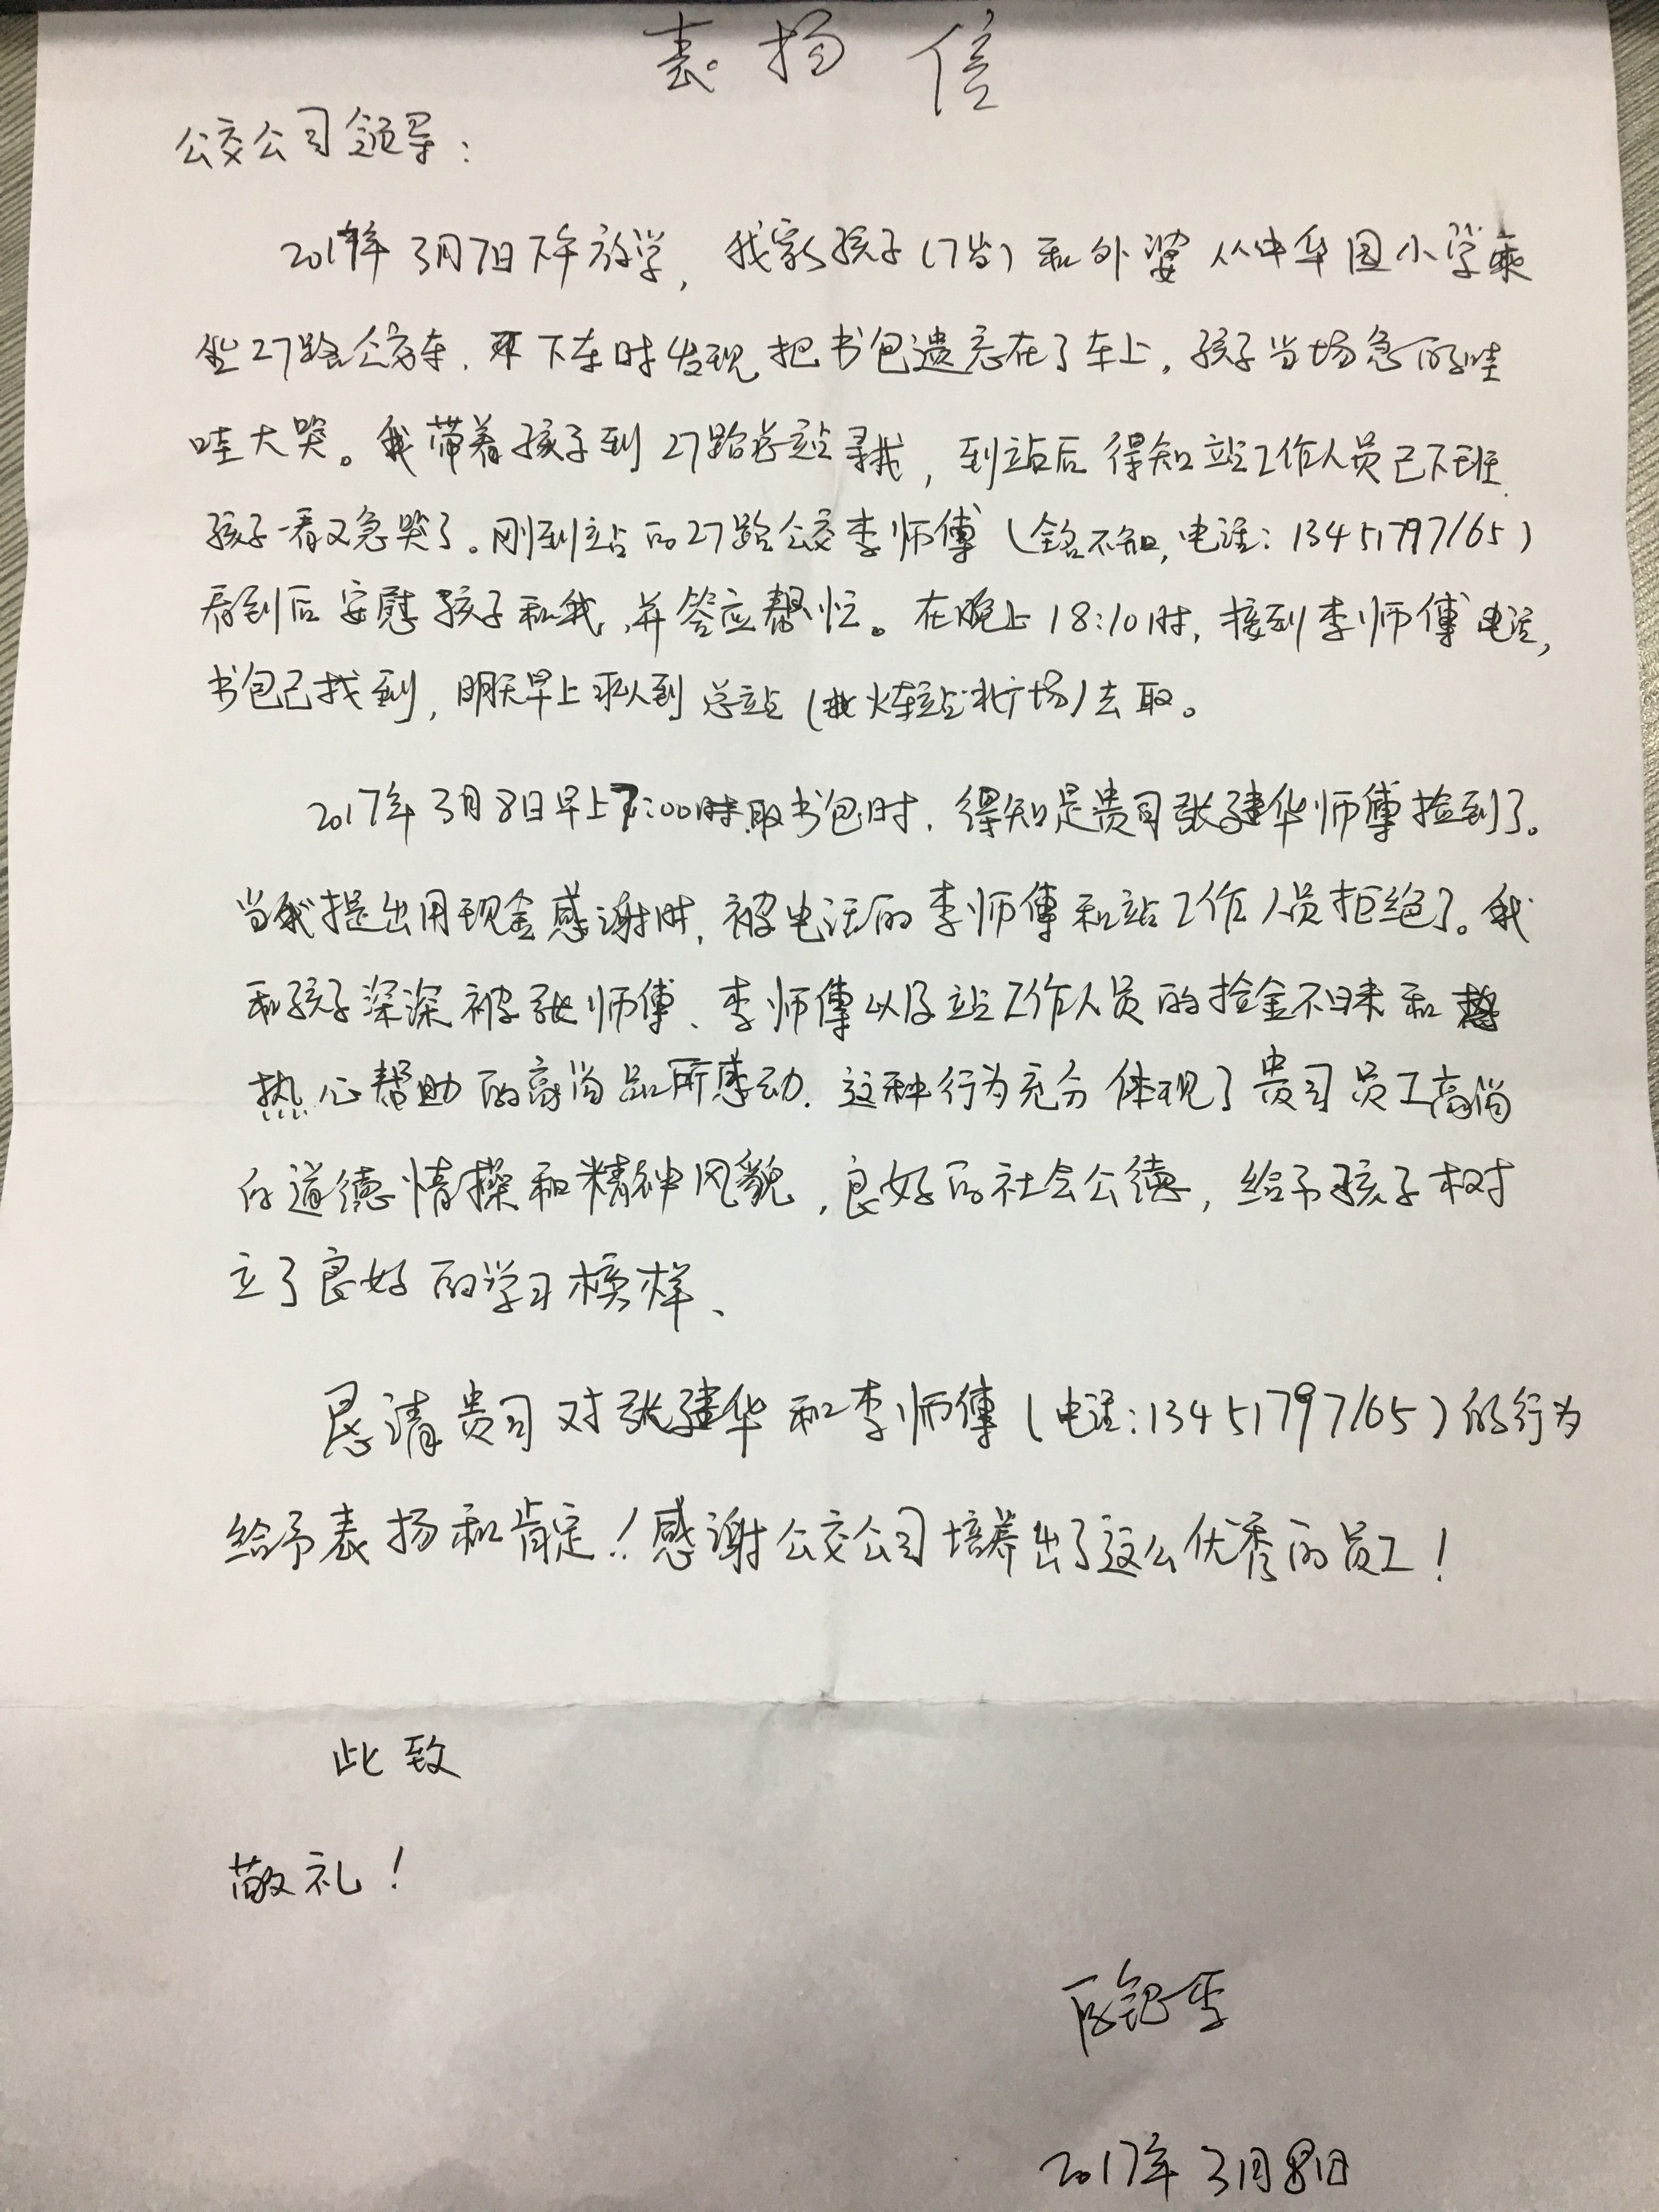 表扬信
公交公司领导：
2017年3月7日下午放学，我家孩子（7岁）和外婆从中华园小学乘
坐27路公交车，下车时发现把书包遗忘在了车上，孩子当场急的哇
哇大哭。我带着孩子到27路总站寻找，到站后得知站工作人员已下班，
孩子一看又急哭了。刚到站的27路公交李师傅（全名不知，电话：13451797165）
看到后安慰孩子和我，并答应帮忙。在晚上18:10时，接到李师傅电话，
书包已找到，明天早上派人到总站（火车站北广场）去取。
2017年3月8日早上7:00时取书包时，得知是贵司张建华师傅捡到了。
当我提出用现金感谢时，被电话的李师傅和站工作人员拒绝了。我
和孩子深深被张师傅、李师傅以及站工作人员的捡金不昧和
热心帮助的高尚品所感动．这种行为充分体现了贵司员工高尚
的道德情操和精神风貌，良好的社会公德，给予孩子树
立了良好的学习榜样、
恳请贵司对张建华和李师傅（电话：13451797165）的行为
给予表扬和肯定！感谢公交公司培养出了这么优秀的员工！
此致
敬礼！
2017年3月8日